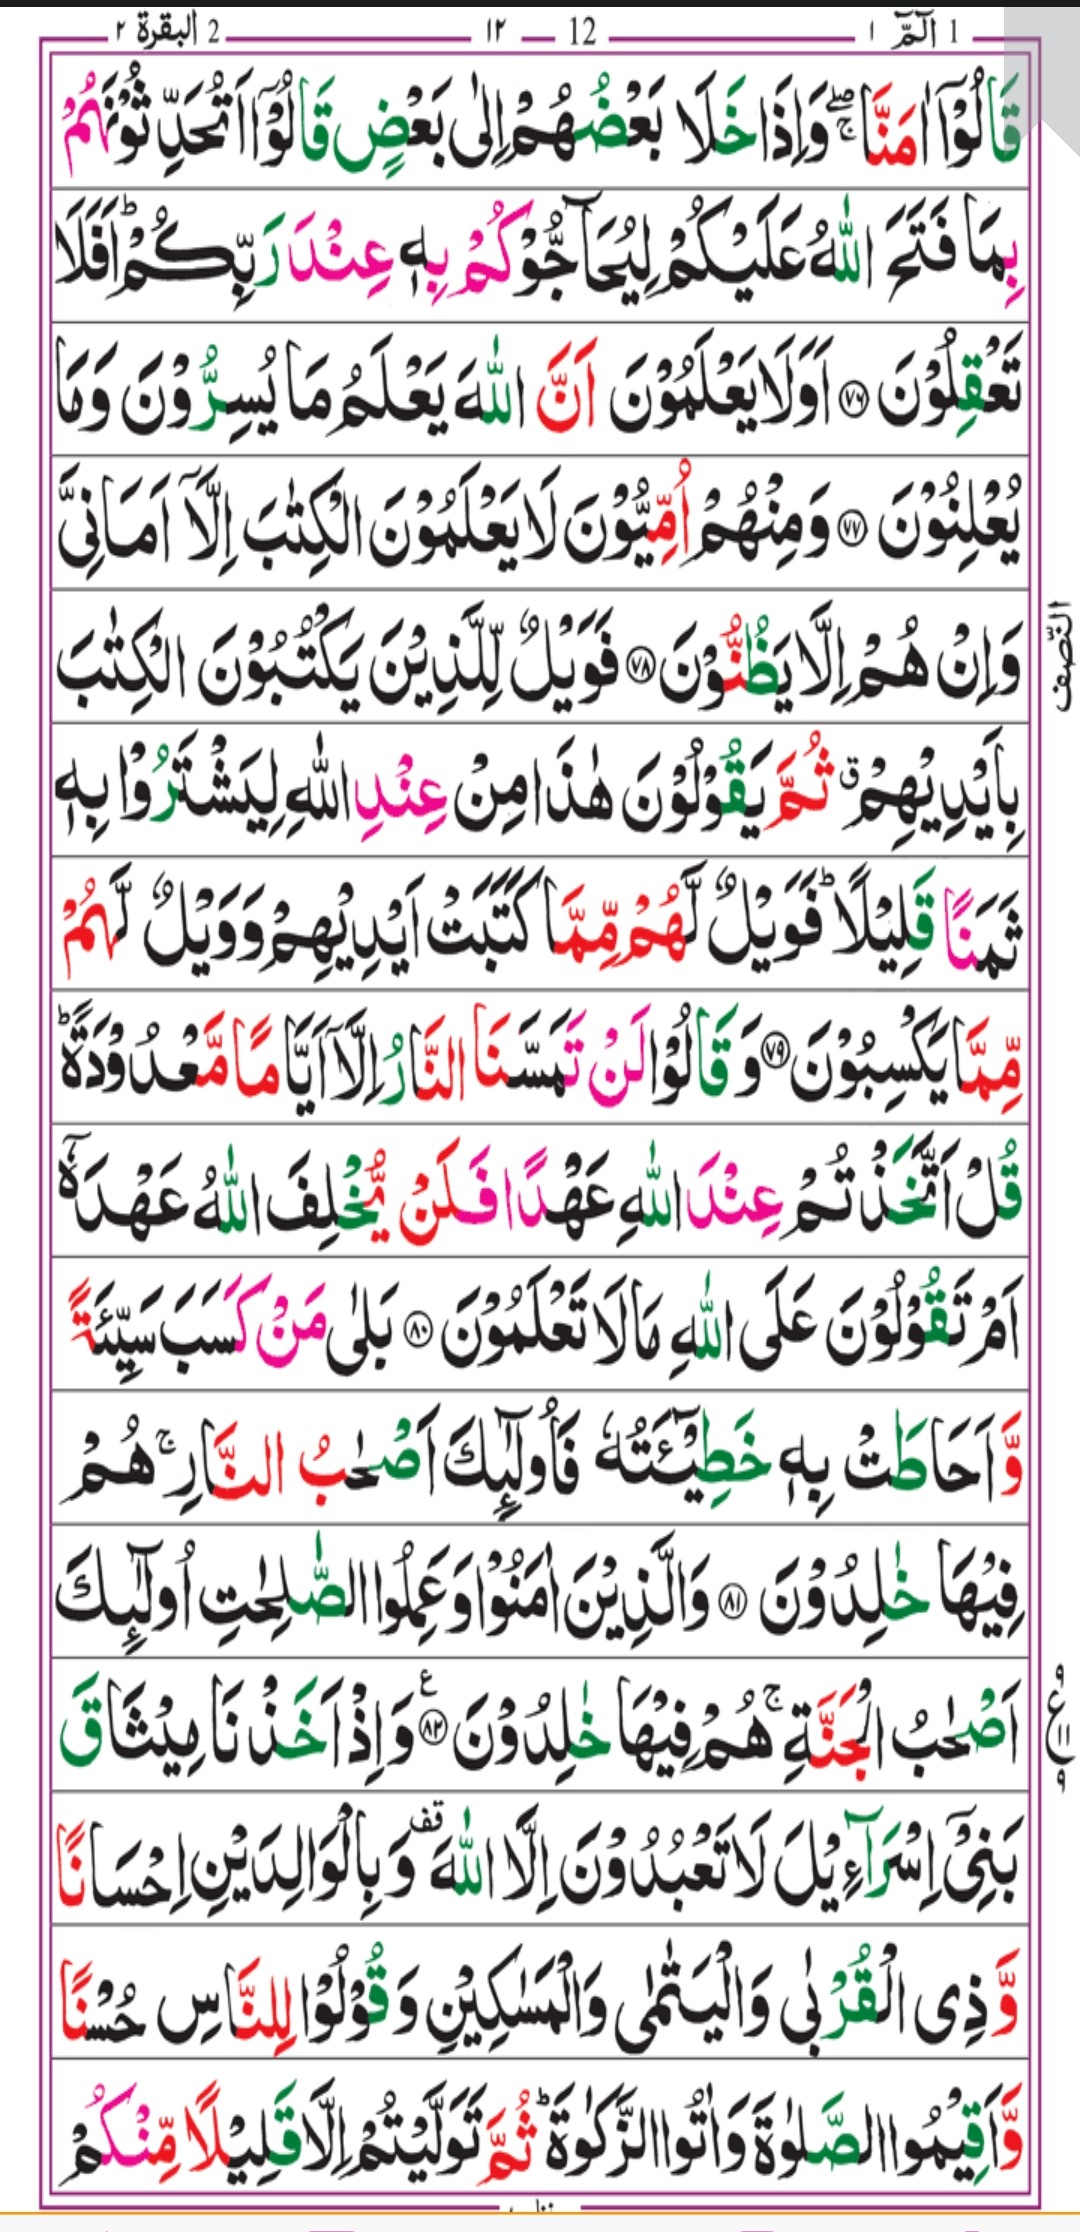 1 الٓمّٓ ١ 12 — ١٢ 2 البقرة ٢
قَالُوْۤا اٰمَنَّا ۖۚ وَاِذَا خَلَا بَعْضُهُمْ اِلٰى بَعْضٍ قَالُوْۤا اَتُحَدِّثُوْنَهُمْ
بِمَا فَتَحَ اللّٰهُ عَلَيْكُمْ لِيُحَآجُّوْكُمْ بِهٖ عِنْدَ رَبِّكُمْ ؕ اَفَلَا
تَعْقِلُوْنَ ﴿٧٦﴾ اَوَلَا يَعْلَمُوْنَ اَنَّ اللّٰهَ يَعْلَمُ مَا يُسِرُّوْنَ وَمَا
يُعْلِنُوْنَ ﴿٧٧﴾ وَمِنْهُمْ اُمِّيُّوْنَ لَا يَعْلَمُوْنَ الْكِتٰبَ اِلَّاۤ اَمَانِىَّ
وَاِنْ هُمْ اِلَّا يَظُنُّوْنَ ﴿٧٨﴾ فَوَيْلٌ لِّلَّذِيْنَ يَكْتُبُوْنَ الْكِتٰبَ
النّصف
بِاَيْدِيْهِمْ ۗ ثُمَّ يَقُوْلُوْنَ هٰذَا مِنْ عِنْدِ اللّٰهِ لِيَشْتَرُوْا بِهٖ
ثَمَنًا قَلِيْلًا ؕ فَوَيْلٌ لَّهُمْ مِّمَّا كَتَبَتْ اَيْدِيْهِمْ وَوَيْلٌ لَّهُمْ
مِّمَّا يَكْسِبُوْنَ ﴿٧٩﴾ وَقَالُوْا لَنْ تَمَسَّنَا النَّارُ اِلَّاۤ اَيَّامًا مَّعْدُوْدَةً ؕ
قُلْ اَتَّخَذْتُمْ عِنْدَ اللّٰهِ عَهْدًا فَلَنْ يُّخْلِفَ اللّٰهُ عَهْدَهٗۤ
اَمْ تَقُوْلُوْنَ عَلَى اللّٰهِ مَا لَا تَعْلَمُوْنَ ﴿٨٠﴾ بَلٰى مَنْ كَسَبَ سَيِّئَةً
وَّاَحَاطَتْ بِهٖ خَطِيْٓـَٔتُهٗ فَاُولٰٓئِكَ اَصْحٰبُ النَّارِ ۚ هُمْ
فِيْهَا خٰلِدُوْنَ ﴿٨١﴾ وَالَّذِيْنَ اٰمَنُوْا وَعَمِلُوا الصّٰلِحٰتِ اُولٰٓئِكَ
اَصْحٰبُ الْجَنَّةِ ۚ هُمْ فِيْهَا خٰلِدُوْنَ ﴿٨٢﴾ ع وَاِذْ اَخَذْنَا مِيْثَاقَ
بَنِىْۤ اِسْرَآءِيْلَ لَا تَعْبُدُوْنَ اِلَّا اللّٰهَ قف وَبِالْوَالِدَيْنِ اِحْسَانًا
وَّذِى الْقُرْبٰى وَالْيَتٰمٰى وَالْمَسٰكِيْنِ وَقُوْلُوْا لِلنَّاسِ حُسْنًا
وَّاَقِيْمُوا الصَّلٰوةَ وَاٰتُوا الزَّكٰوةَ ؕ ثُمَّ تَوَلَّيْتُمْ اِلَّا قَلِيْلًا مِّنْكُمْ